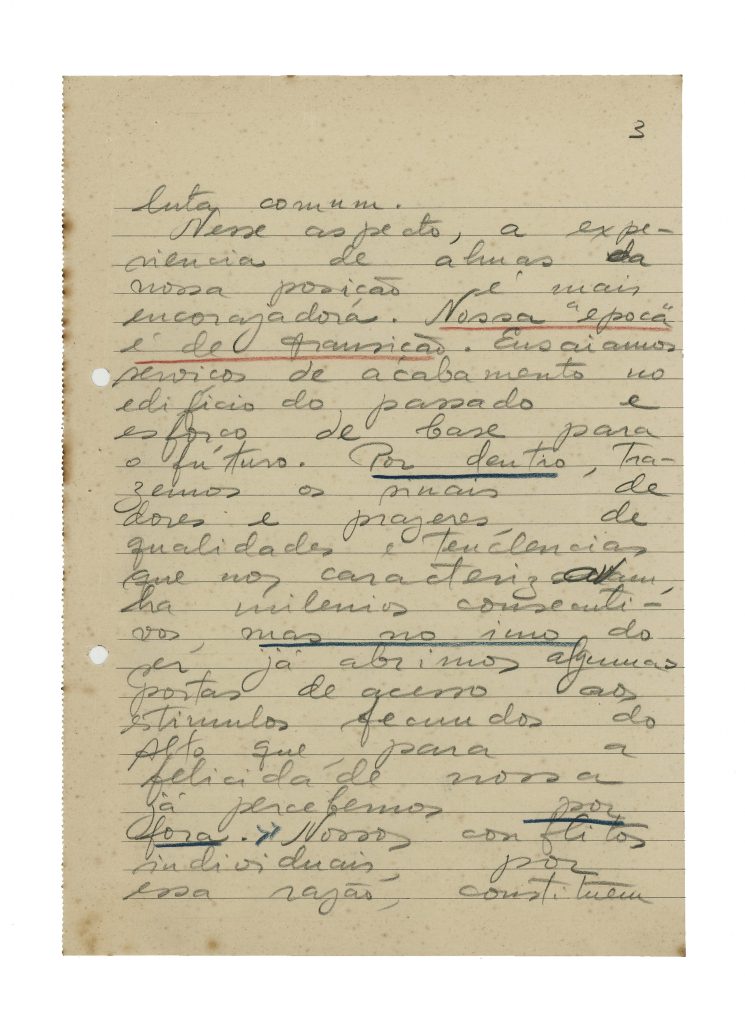 3
luta comum.
Nesse aspecto, a expe-
riencia de almas da
nossa posição é mais
encorajadorá. Nossa "epoca"
é de transição. Ensaiamos
serviços de acabamento no
edificio do passado e
esforço de base para
o fúturo. Por dentro, tra-
zemos os sinais de
dores e prazeres, de
qualidades e tendencias
que nos caracterizam
ha milenios consecuti-
vos, mas no imo do
ser já abrimos algumas
portas de acesso aos
estimulos fecundos do
Alto que, para a
felicidade nossa
já percebemos por
fora. Nossos conflitos
individuais, por
essa razão, constituem